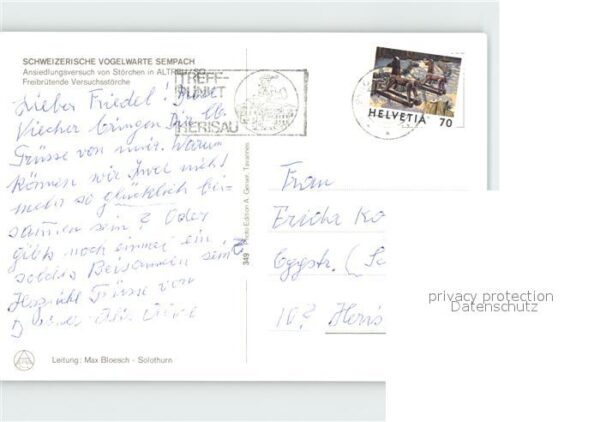 SCHWEIZERISCHE VOGELWARTE SEMPACH
Ansiedlungsversuch von Störchen in ALTREU/SO
Freibrütende Versuchsstörche
Lieber Friedel! Diese
Viecher bringen Dir lb.
Grüsse von mir. Warum
können wir zwei nicht
mehr so glücklich bei-
sammen sein? Oder
gibts noch einmal ein
solches Beisammen sein?
Herzliche Grüsse von
TREFF-
PUNKT
HERISAU
HELVETIA 70
349 Photo Edition A. Genier, Tavannes
Frau
Ericha Ko
Eggstr.
Heris
privacy protection
Datenschutz
Leitung: Max Bloesch - Solothurn